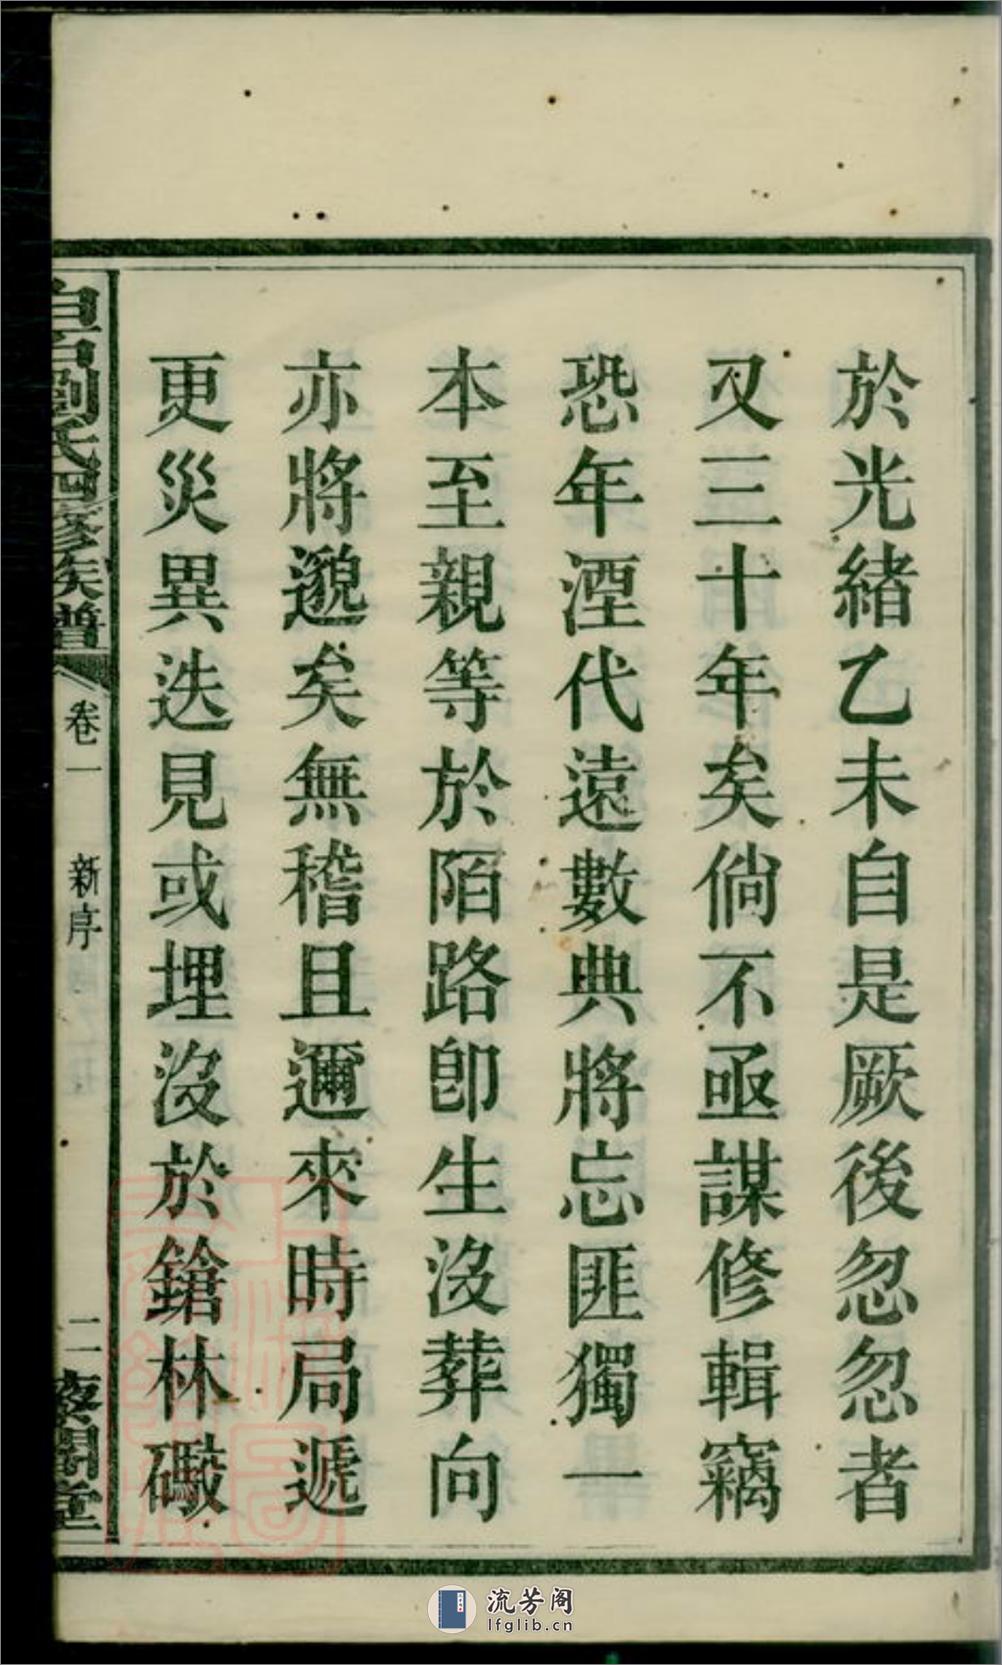 於光緒乙未自是厥後忽忽者
又三十年矣倘不亟謀修輯竊
恐年湮代遠數典將忘匪獨一
本至親等於陌路卽生沒葬向
亦將邈矣無稽且邇來時局遞
更災異迭見或埋沒於鎗林礮
白石劉氏四修族譜
卷一 新序
二
流芳阁
lfglib.cn